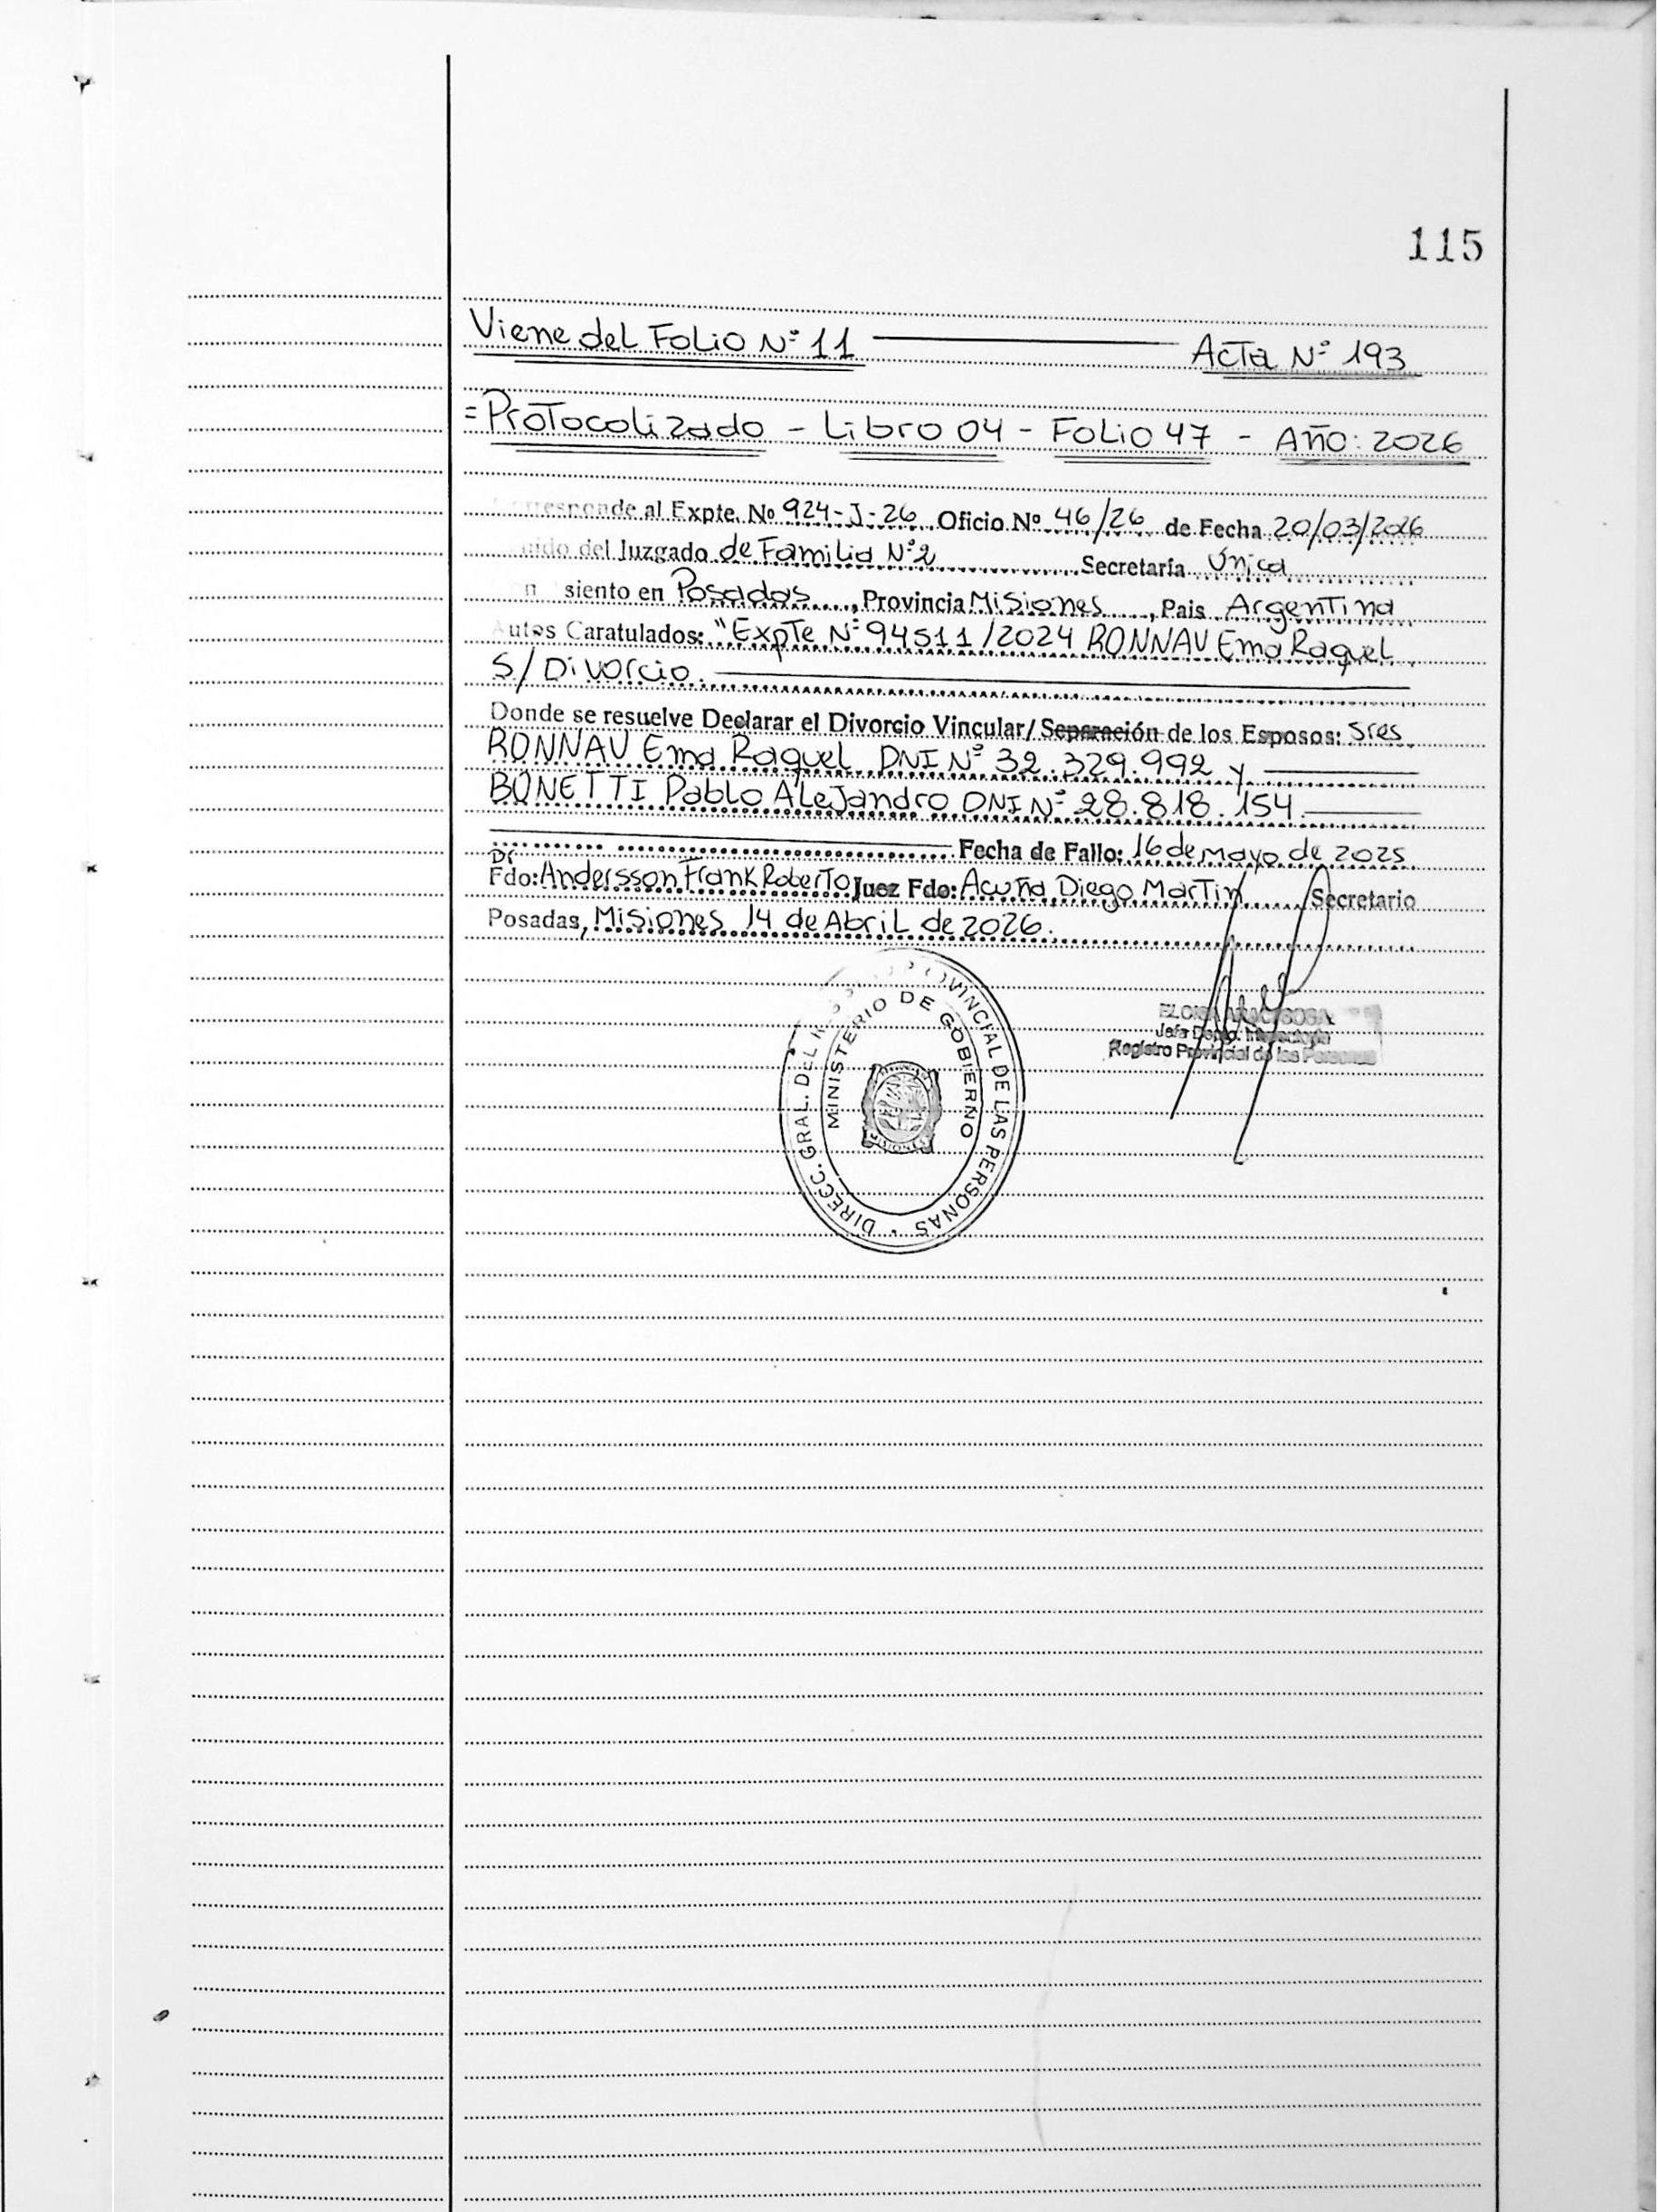 115
Viene del Folio Nº 11 Acta Nº 193
= Protocolizado - Libro 04 - Folio 47 - Año: 2026
rresponde al Expte. Nº 924-J-26 Oficio Nº 46/26 de Fecha 20/03/2026
nido del Juzgado de Familia Nº2 Secretaría Única
n siento en Posadas, Provincia Misiones, Pais Argentina
Autos Caratulados: "Expte Nº 94511/2024 RONNAU Ema Raquel
S/ Divorcio.
Donde se resuelve Declarar el Divorcio Vincular/ Separación de los Esposos: Sres
RONNAU Ema Raquel DNI Nº 32.329.992 y
BONETTI Pablo Alejandro DNI Nº 28.818.154.
Fecha de Fallo: 16 de Mayo de 2025
Dr
Fdo: Andersson Frank Roberto Juez Fdo: Acuña Diego Martin Secretario
Posadas, Misiones 14 de Abril de 2026.
DIRECC. GRAL. DEL PROVINCIAL DE LAS PERSONAS
MINISTERIO DE GOBIERNO
MISIONES
SOSA
Jefa Dpto.
Registro Provincial de las Personas